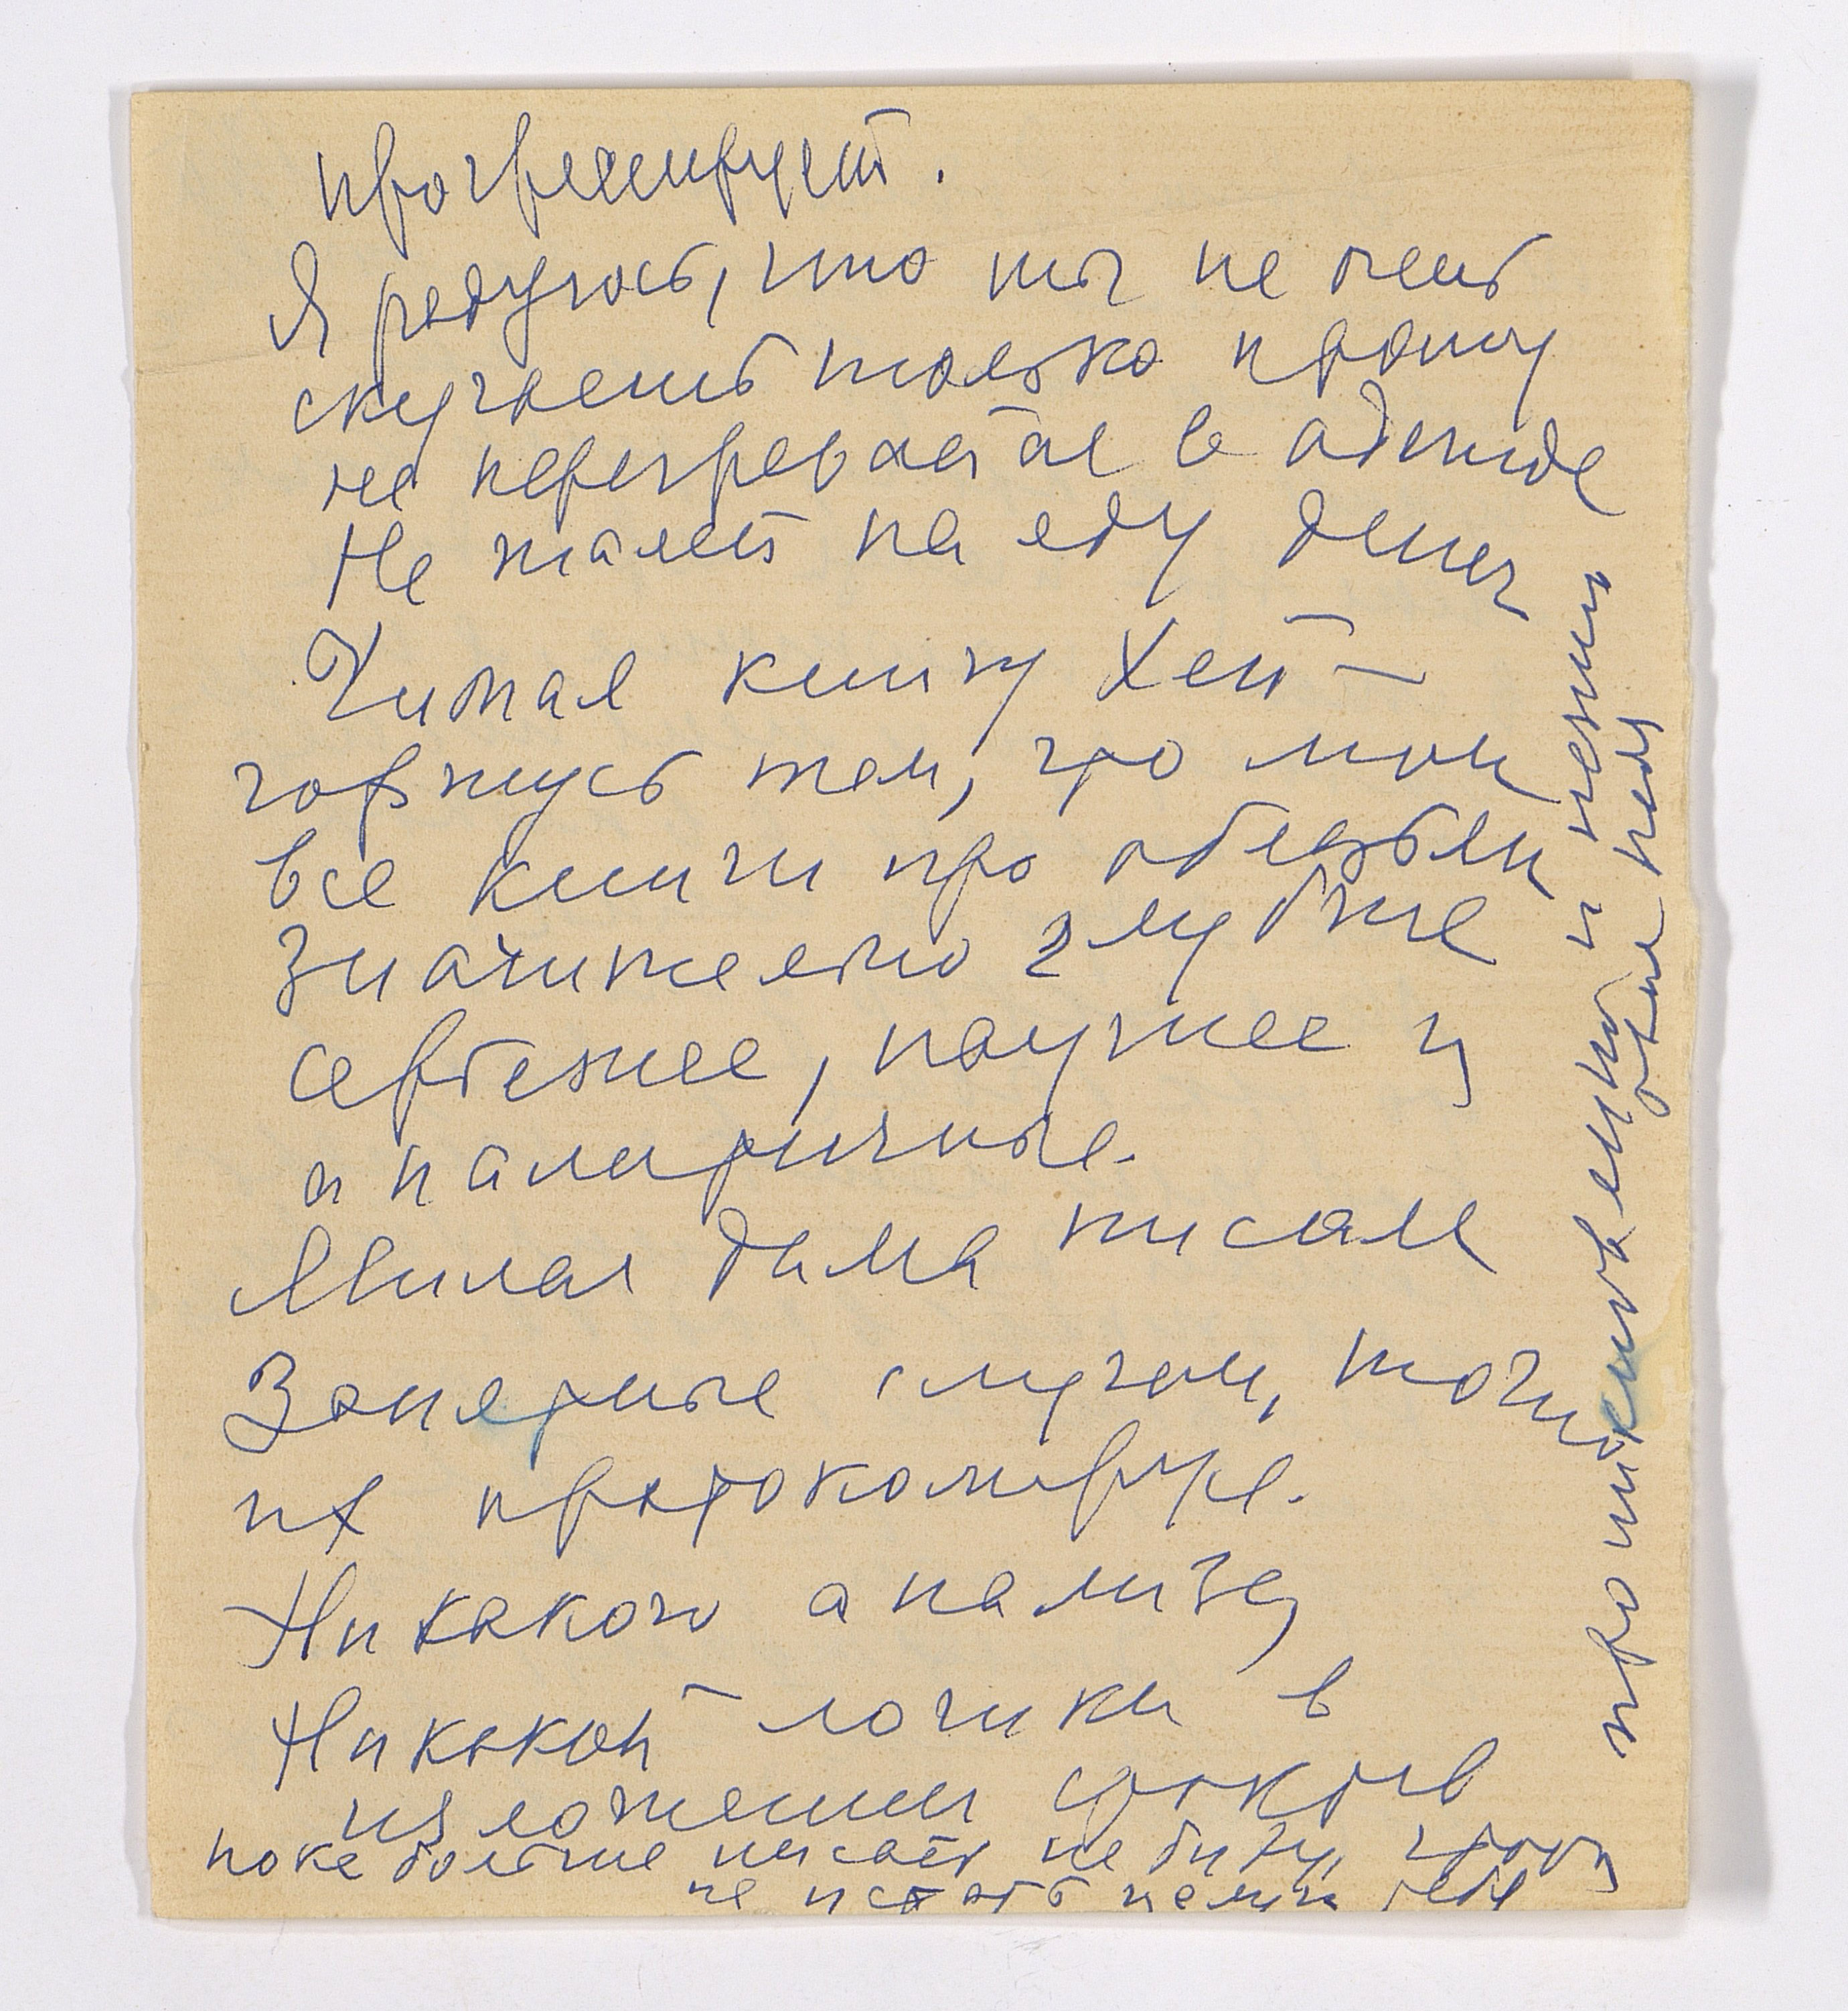 прогрессирует.
Я радуюсь, что ты не очень
скучаешь только прошу
не перегревайся в одежде
Не жалей на еду денег
Читал книгу Хей-
горжусь тем, что мои
все книги про обезьян
значительно глубже
серьезнее, научнее и
и панорамные.
Милая дама писала
Занятные случаи, точно
их протоколируя.
Никакого анализа
Никакой логики в
изложении фактов
пока больше писать не буду, чтобы
не устать целую тебя
проникновенно и нежно